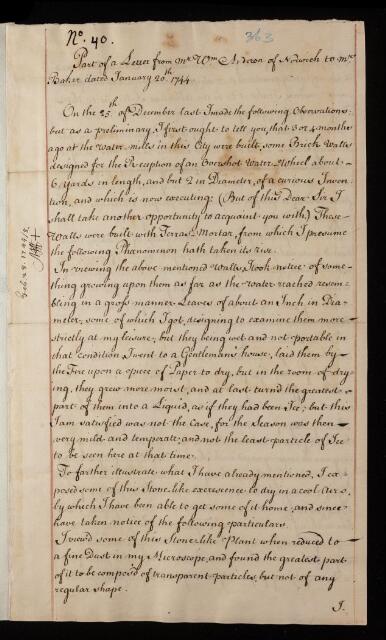 No. 40.
363
Part of a Letter from Mr. Wm. Arderon of Norwich to Mr.
Baker dated January 20th. 1744.
On the 25th of December last I made the following Observations:
but as a preliminary I first ought to tell you, that 3 or 4 months
ago at the Water-mills in this City were built, some Brick Walls
designed for the Reception of an Overshot Water-Wheel about
6 yards in length, and but 2 in Diameter, of a curious Inven-
tion, and which is now executing: (But of this Dear Sir I
shall take another opportunity to acquaint you with) These
Walls were built with Terrass Mortar, from which I presume
the following Phænomenon hath taken its rise.
In viewing the above mentioned Walls, I took notice of some-
thing growing upon them as far as the Water reached resem-
bling in a gross manner Leaves of about an Inch in Dia-
meter, some of which I got, designing to examine them more
strictly at my leisure, but they being wet and not portable in
that condition I went to a Gentlemans house, laid them by
the Fire upon a piece of Paper to dry, but in the room of dry-
ing, they grew more moist, and at last turnd the greatest
part of them into a Liquid, as if they had been Ice; but this
I am satisfied was not the Case, for the Season was then
very mild and temperate, and not the least particle of Ice
to be seen here at that time.
To farther illustrate what I have already mentioned, I ex-
posed some of this Stone-like excrescence to dry in a cool Air,
by which I have been able to get some of it home, and since
have taken notice of the following particulars.
I view'd some of this Stone-like Plant when reduced to
a fine Dust in my Microscope, and found the greatest part
of it to be compos'd of transparent particles, but not of any
regular shape.
I.